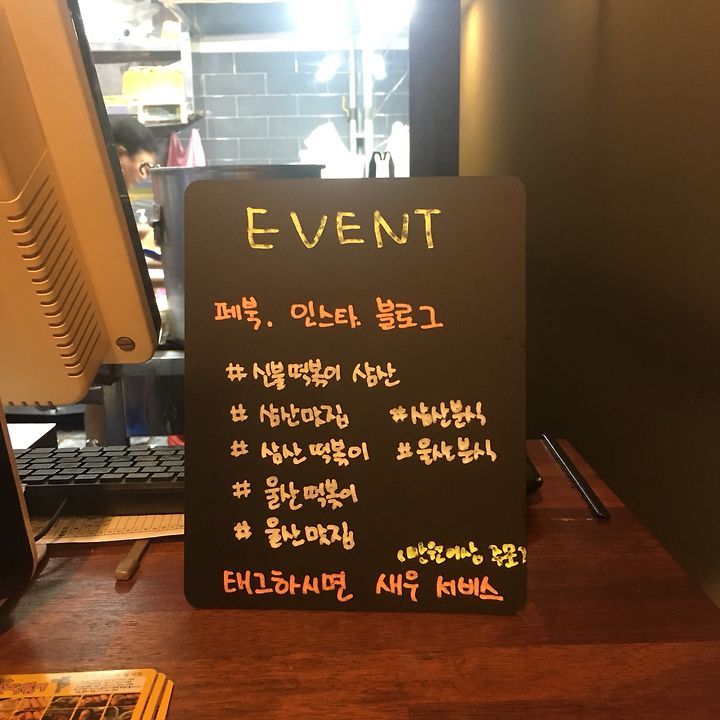 EVENT
페북. 인스타. 블로그
#신불떡볶이 삼산
# 삼산맛집 #삼산분식
# 삼산떡볶이 #울산분식
# 울산떡볶이
# 울산맛집
만원이상
태그하시면 새우 서비스